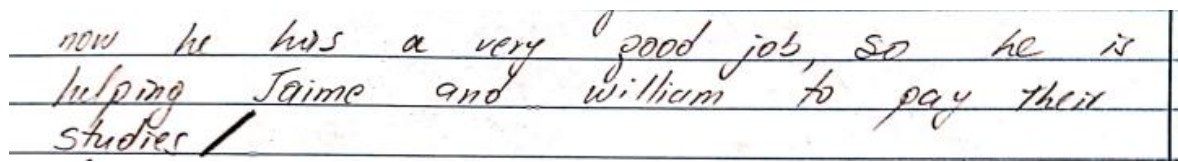 now he has a very good job, so he is
helping Jaime and william to pay their
studies /